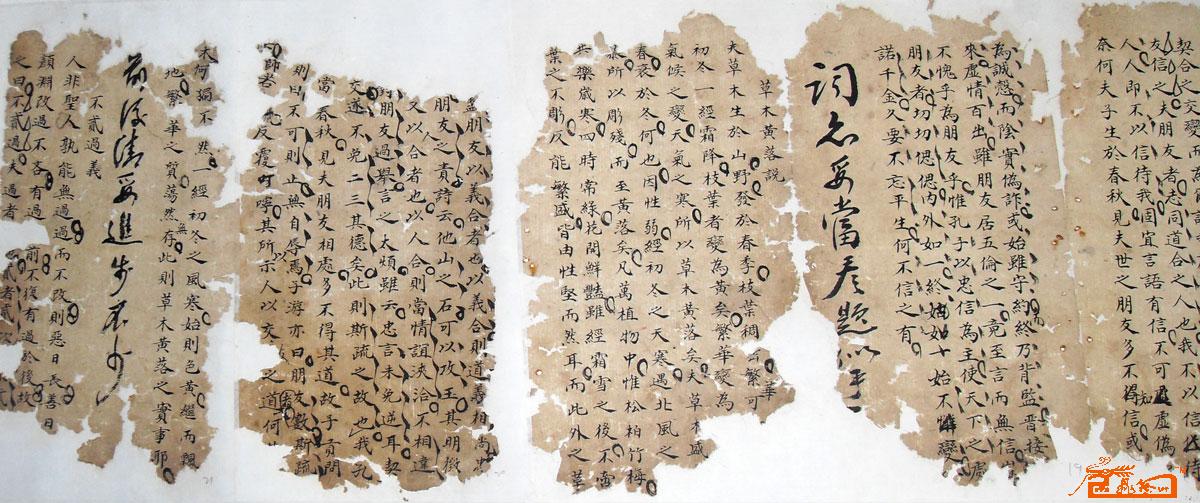 契合之
友信之夫朋友者志同道合之人也我不以信
人人即不以信待我固宜言語有信不可虛偽
奈何夫子生於春秋見夫世之朋友多不信或
為誠慤而陰實偽詐或始雖守約終乃背盟晉接
來虛情百出雖朋友居五倫之一竟至言而無信
不愧乎為朋友乎惟孔子以忠信為主使天下之
朋友者切切偲偲內外如一終始不
諾千金久要不忘平生何不信之有
詞意妥當
草木黃落說
夫草木生於山野發於春季枝葉稠繁可
初冬一經霜降枝葉者變為黃矣繁華變為
氣候之變天氣之寒所以草木黃落矣夫草木盛
春衰於冬何也因性弱經初冬之天寒遇北風之
暴所以彫殘而至黃落矣凡萬植物中惟松柏竹梅
共樂歲寒四時常綠花開鮮豔雖經霜雪之後不
葉之不彫反能繁盛皆由性堅而然耳而此外之
朋友以義合者也以義合則道義相尚
朋友之貴詩云他山之石可以攻玉其明徵
又以人合者也以人合則當情誼浹洽不相違
朋友過舉言之太煩雖云忠言未免逆耳契
交遂不免二三其德矣此則斯疏之故也我孔
當春秋見夫朋友相處多不得其道故子貢問
則曰不可則止無自辱焉子游亦曰朋友數斯疏
反覆叮嚀其所示人以交之道何
木何獨不然一經初冬之風寒始則色黃繼而飄
地繁華之質蕩然無存此則草木黃落之實事耶
前後清妥進步不少
不貳過義
人非聖人孰能無過過而不改則惡日長善日
顏淵改過不吝有過前不復有過於後故
之曰不貳過夫過者